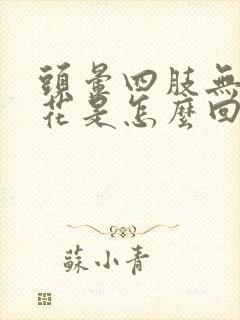 頭暈四肢無
花是怎麼回
蘇小青